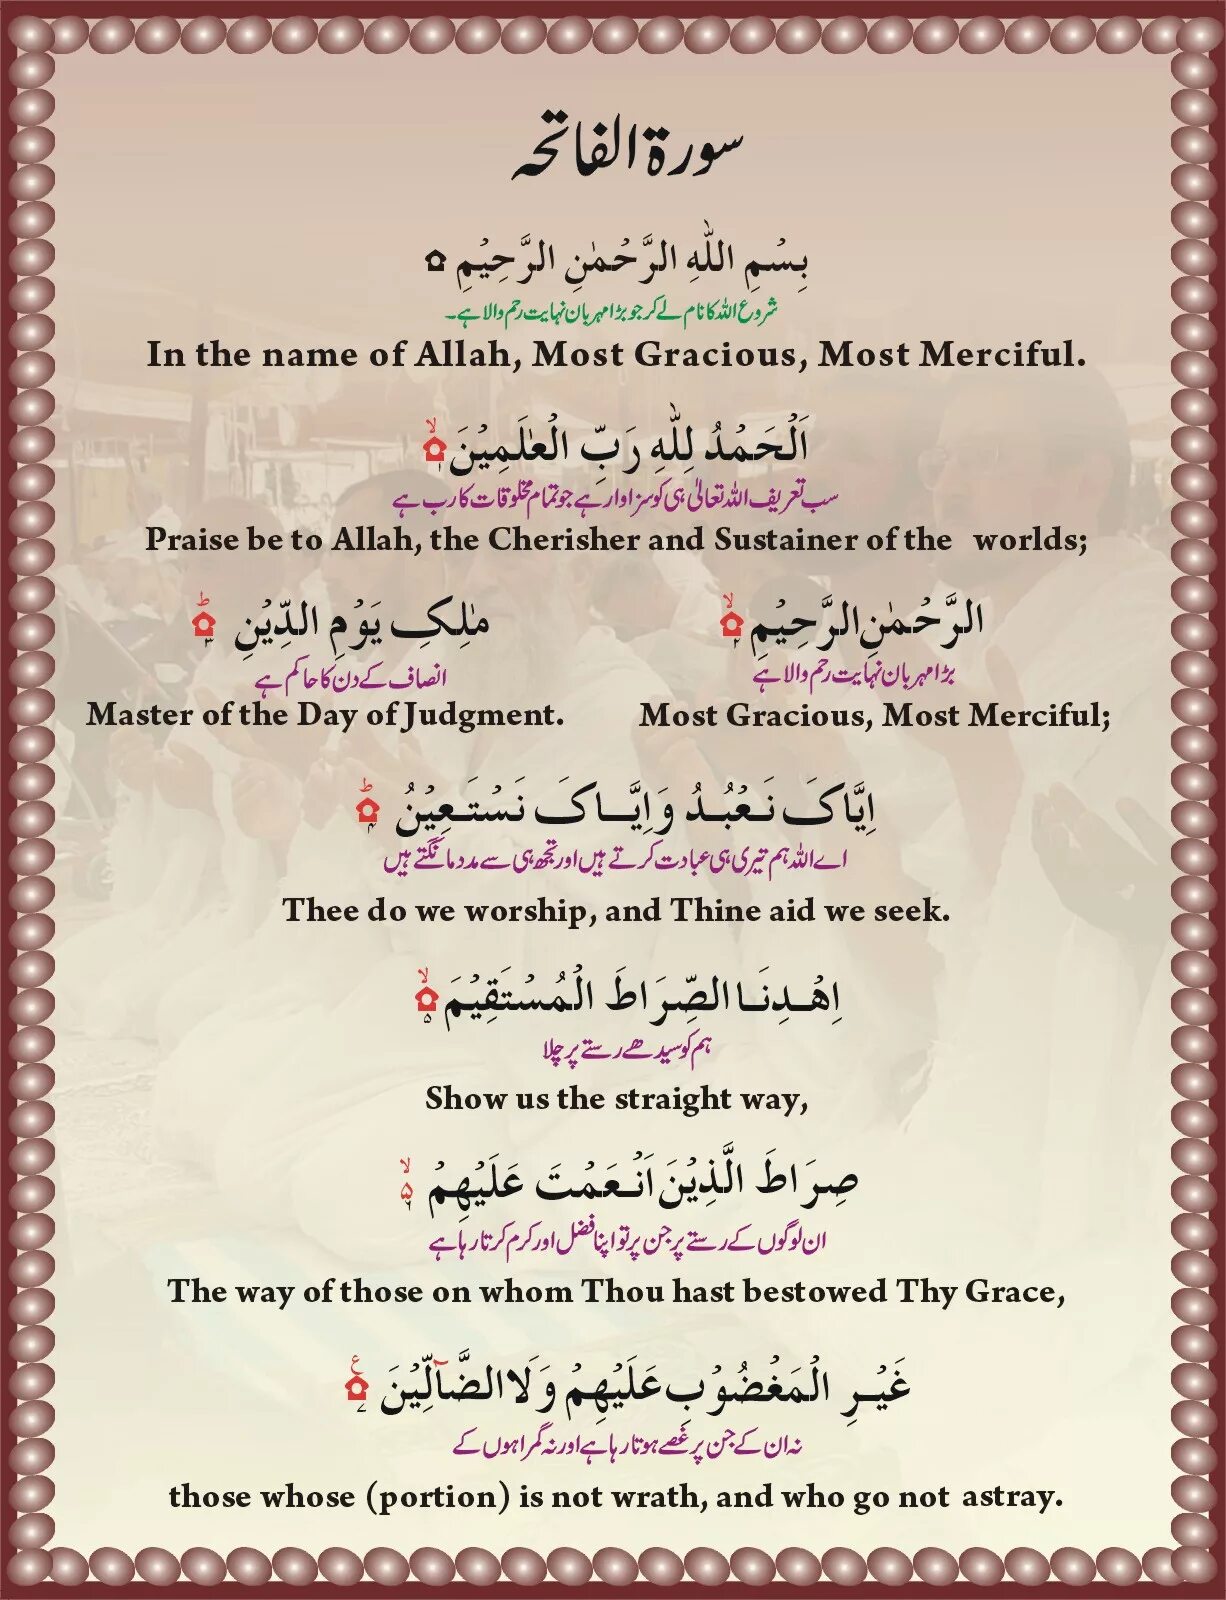 سورة الفاتحہ
بِسْمِ اللّٰهِ الرَّحْمٰنِ الرَّحِيْمِ ۝
شروع اللہ کا نام لے کر جو بڑا مہربان نہایت رحم والا ہے۔
In the name of Allah, Most Gracious, Most Merciful.
اَلْحَمْدُ لِلّٰهِ رَبِّ الْعٰلَمِيْنَ ۙ۝۱
سب تعریف اللہ تعالیٰ ہی کو سزاوار ہے جو تمام مخلوقات کا رب ہے
Praise be to Allah, the Cherisher and Sustainer of the worlds;
الرَّحْمٰنِ الرَّحِيْمِ ۙ۝۲
بڑا مہربان نہایت رحم والا ہے
Most Gracious, Most Merciful;
مٰلِكِ يَوْمِ الدِّيْنِ ؕ۝۳
انصاف کے دن کا حاکم ہے
Master of the Day of Judgment.
اِيَّاكَ نَعْبُدُ وَاِيَّاكَ نَسْتَعِيْنُ ؕ۝۴
اے اللہ ہم تیری ہی عبادت کرتے ہیں اور تجھ ہی سے مدد مانگتے ہیں
Thee do we worship, and Thine aid we seek.
اِهْدِنَا الصِّرَاطَ الْمُسْتَقِيْمَ ۙ۝۵
ہم کو سیدھے رستے پر چلا
Show us the straight way,
صِرَاطَ الَّذِيْنَ اَنْعَمْتَ عَلَيْهِمْ ۙ۵ ۶
ان لوگوں کے رستے پر جن پر تو اپنا فضل اور کرم کرتا رہا ہے
The way of those on whom Thou hast bestowed Thy Grace,
غَيْرِ الْمَغْضُوْبِ عَلَيْهِمْ وَلَا الضَّآلِّيْنَ ۝ع ۷
نہ ان کے جن پر غصے ہوتا رہا ہے اور نہ گمراہوں کے
those whose (portion) is not wrath, and who go not astray.